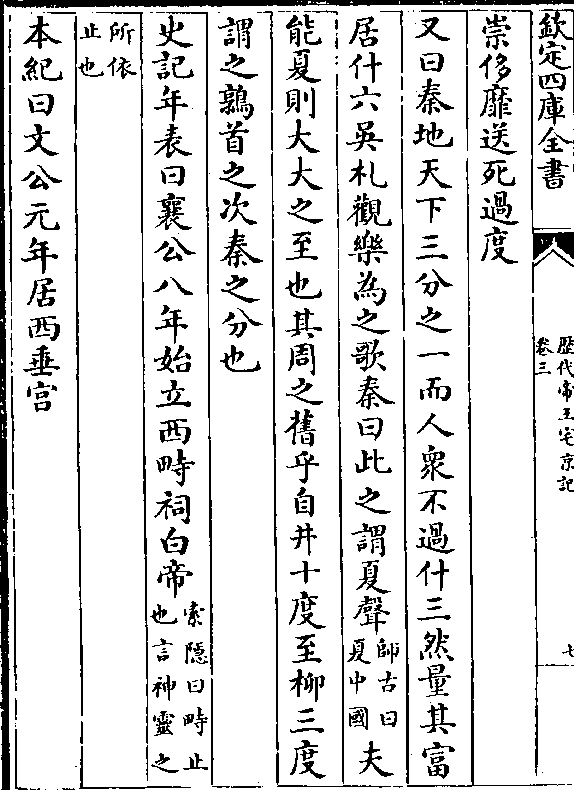 欽定四庫全書
歴代帝王宅京記
卷三
七
崇侈靡送死過度
又曰秦地天下三分之一而人衆不過什三然量其富
居什六吳札觀樂為之歌秦曰此之謂夏聲師古曰夏中國夫
能夏則大大之至也其周之舊乎自井十度至柳三度
謂之鶉首之次秦之分也
史記年表曰襄公八年始立西畤祠白帝索隱曰畤止也言神靈之
所依止也
本紀曰文公元年居西垂宫